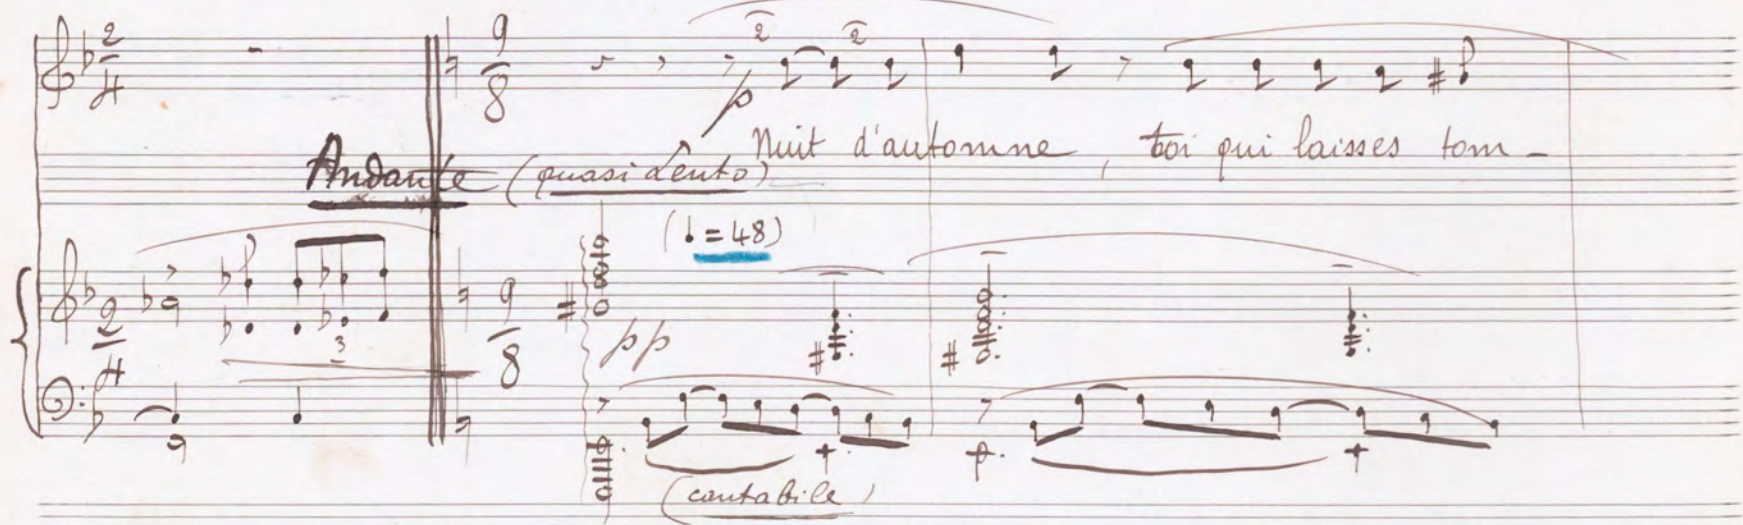 2/4 9/8 2 2
p
Nuit d'automne, toi qui laisses tom-
Andante (quasi Lento)
(♩ = 48)
2/4 3 9/8 pp
(cantabile)